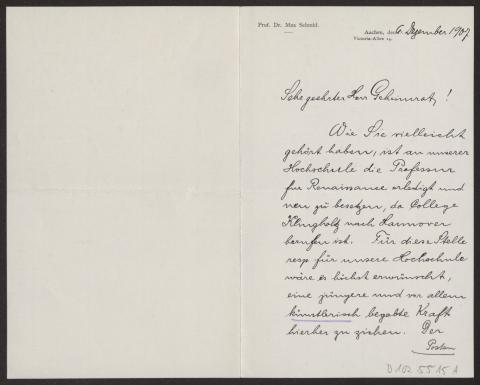 Prof. Dr. Max Schmid.
Aachen, den 6. Dezember 1907
Victoria-Allee 14.
Sehr geehrter Herr Geheimrat!
Wie Sie vielleicht
gehört haben, ist an unserer
Hochschule die Professur
für Renaissance erledigt und
neu zu besetzen, da College
Klingholz nach Hannover
berufen ist. Für diese Stelle
resp für unsere Hochschule
wäre es höchst erwünscht,
eine jüngere und vor allem
künstlerisch begabte Kraft
hierher zu ziehen. Der
Posten
D 102 5515 A